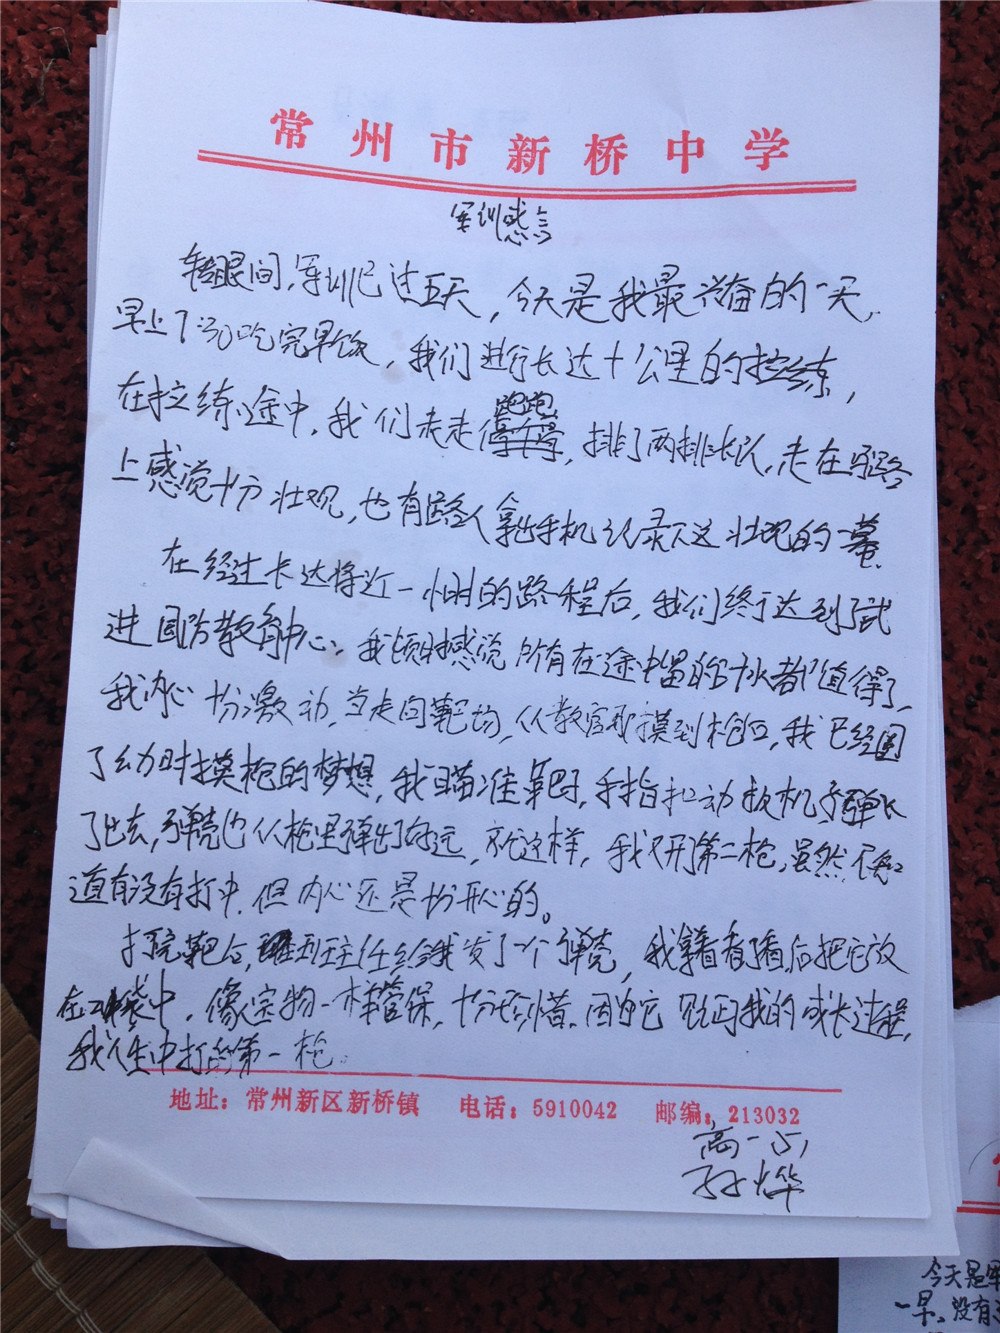 常州市新桥中学
军训感言
转眼间，军训已过五天，今天是我最兴奋的一天，
早上7:30吃完早饭，我们进行长达十公里的拉练，
在拉练途中，我们走走跑跑，排了两排长队，走在马路
上感觉十分壮观，也有路人拿出手机记录下这壮观的一幕
在经过长达将近一小时的路程后，我们终于达到了武
进国防教育中心，我顿时感觉所有在途中留的汗水都值得了，
我内心十分激动，当走向靶场，从教官那摸到枪口，我已经圆
了幼时摸枪的梦想，我瞄准靶子，手指扣动扳机子弹飞
了出去，弹壳也从枪里弹出了好远，就这样，我又开第二枪，虽然不知
道有没有打中，但内心还是十分开心的。
打完靶后，班主任给我发了一个弹壳，我拿着看了看后把它放
在口袋中，像宝物一样管保，十分珍惜。因为它见证我的成长过程，
我人生中打的第一枪。
地址：常州新区新桥镇 电话：5910042 邮编：213032
高一(5)
孙烨
今天是军
一早，没有